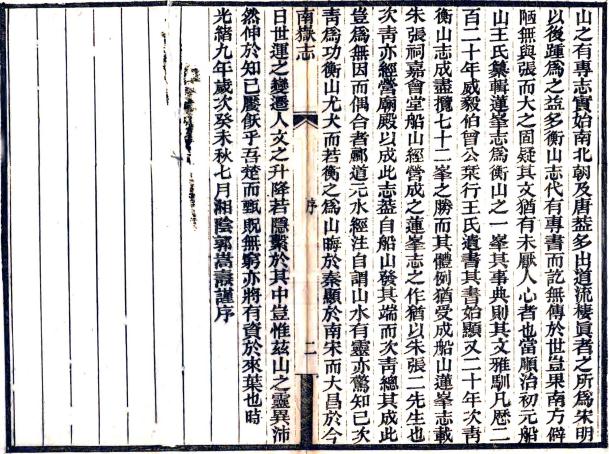 山之有專志實始南北朝及唐益多出道流棲眞者之所爲宋明
以後踵爲之益多衡山志代有專書而訖無傳於世豈果南方僻
陋無與張而大之固疑其文猶有未厭人心者也當順治初元船
山王氏纂輯蓮峯志爲衡山之一峯其事典則其文雅馴凡歷二
百二十年威毅伯曾公栞行王氏遺書其書始顯又二十年次靑
衡山志成盡攬七十二峯之勝而其體例猶受成船山蓮峯志載
朱張祠嘉會堂船山經營成之蓮峯志之作猶以朱張二先生也
次靑亦經營廟殿以成此志葢自船山發其端而次靑總其成此
豈爲無因而偶合者酈道元水經注自謂山水有靈亦驚知已次
靑爲功衡山尤大而若衡之爲山晦於秦顯於南宋而大昌於今
南嶽志
序
二
日世運之變遷人文之升降若隱繫於其中豈惟茲山之靈異沛
然伸於知已饜飫乎吾楚而甄貺無窮亦將有資於來葉也時
光緒九年歲次癸未秋七月湘陰郭嵩燾謹序